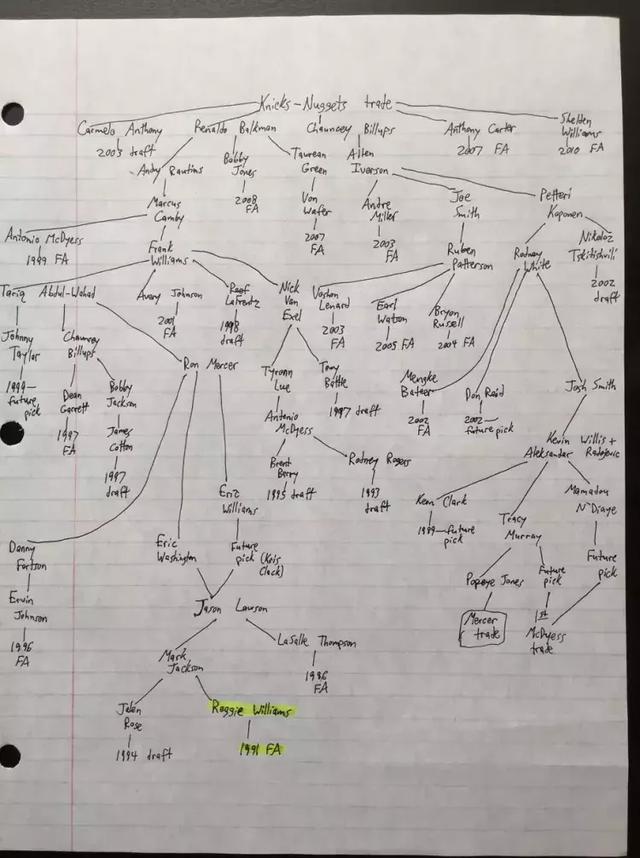 Knicks-Nuggets trade
Carmelo Anthony
2003 draft
Renaldo Balkman
Chauncey Billups
Anthony Carter
2007 FA
Shelden
Williams
2010 FA
Andy Rautins
Bobby
Jones
2008
FA
Taurean
Green
Von
Wafer
2007
FA
Allen
Iverson
Andre
Miller
2003
FA
Joe
Smith
Petteri
Koponen
Marcus
Camby
Antonio McDyess
1999 FA
Frank
Williams
Ruben
Patterson
Rodney
White
Nikoloz
Tskitishvili
2002
draft
Tariq Abdul-Wahad
Avery Johnson
2001
FA
Raef
LaFrentz
1998
draft
Nick
Van
Exel
Voshon
Lenard
2003
FA
Earl
Watson
2005 FA
Bryon
Russell
2004 FA
Johnny
Taylor
1999-
future
pick
Chauncey
Billups
Dean
Garrett
1997
FA
Bobby
Jackson
James
Cotton
1997
draft
Ron Mercer
Tyronn
Lue
Tony
Battie
1997 draft
Antonio
McDyess
Brent
Barry
1995 draft
Rodney Rogers
1993
draft
Mengke
Bateer
2002
FA
Don Reid
2002-
future pick
Josh Smith
Kevin Willis +
Aleksandar Radojevic
Keon Clark
1999-future
pick
Tracy
Murray
Mamadou
N'Diaye
Future
pick
Popeye Jones
Mercer
trade
Future
pick
1st
McDyess
trade
Danny
Fortson
Ervin
Johnson
1996
FA
Eric
Washington
Eric
Williams
Future
pick (Kris
Clack)
Jason Lawson
Mark
Jackson
LaSalle Thompson
1996
FA
Jalen
Rose
1994 draft
Reggie Williams
1991 FA